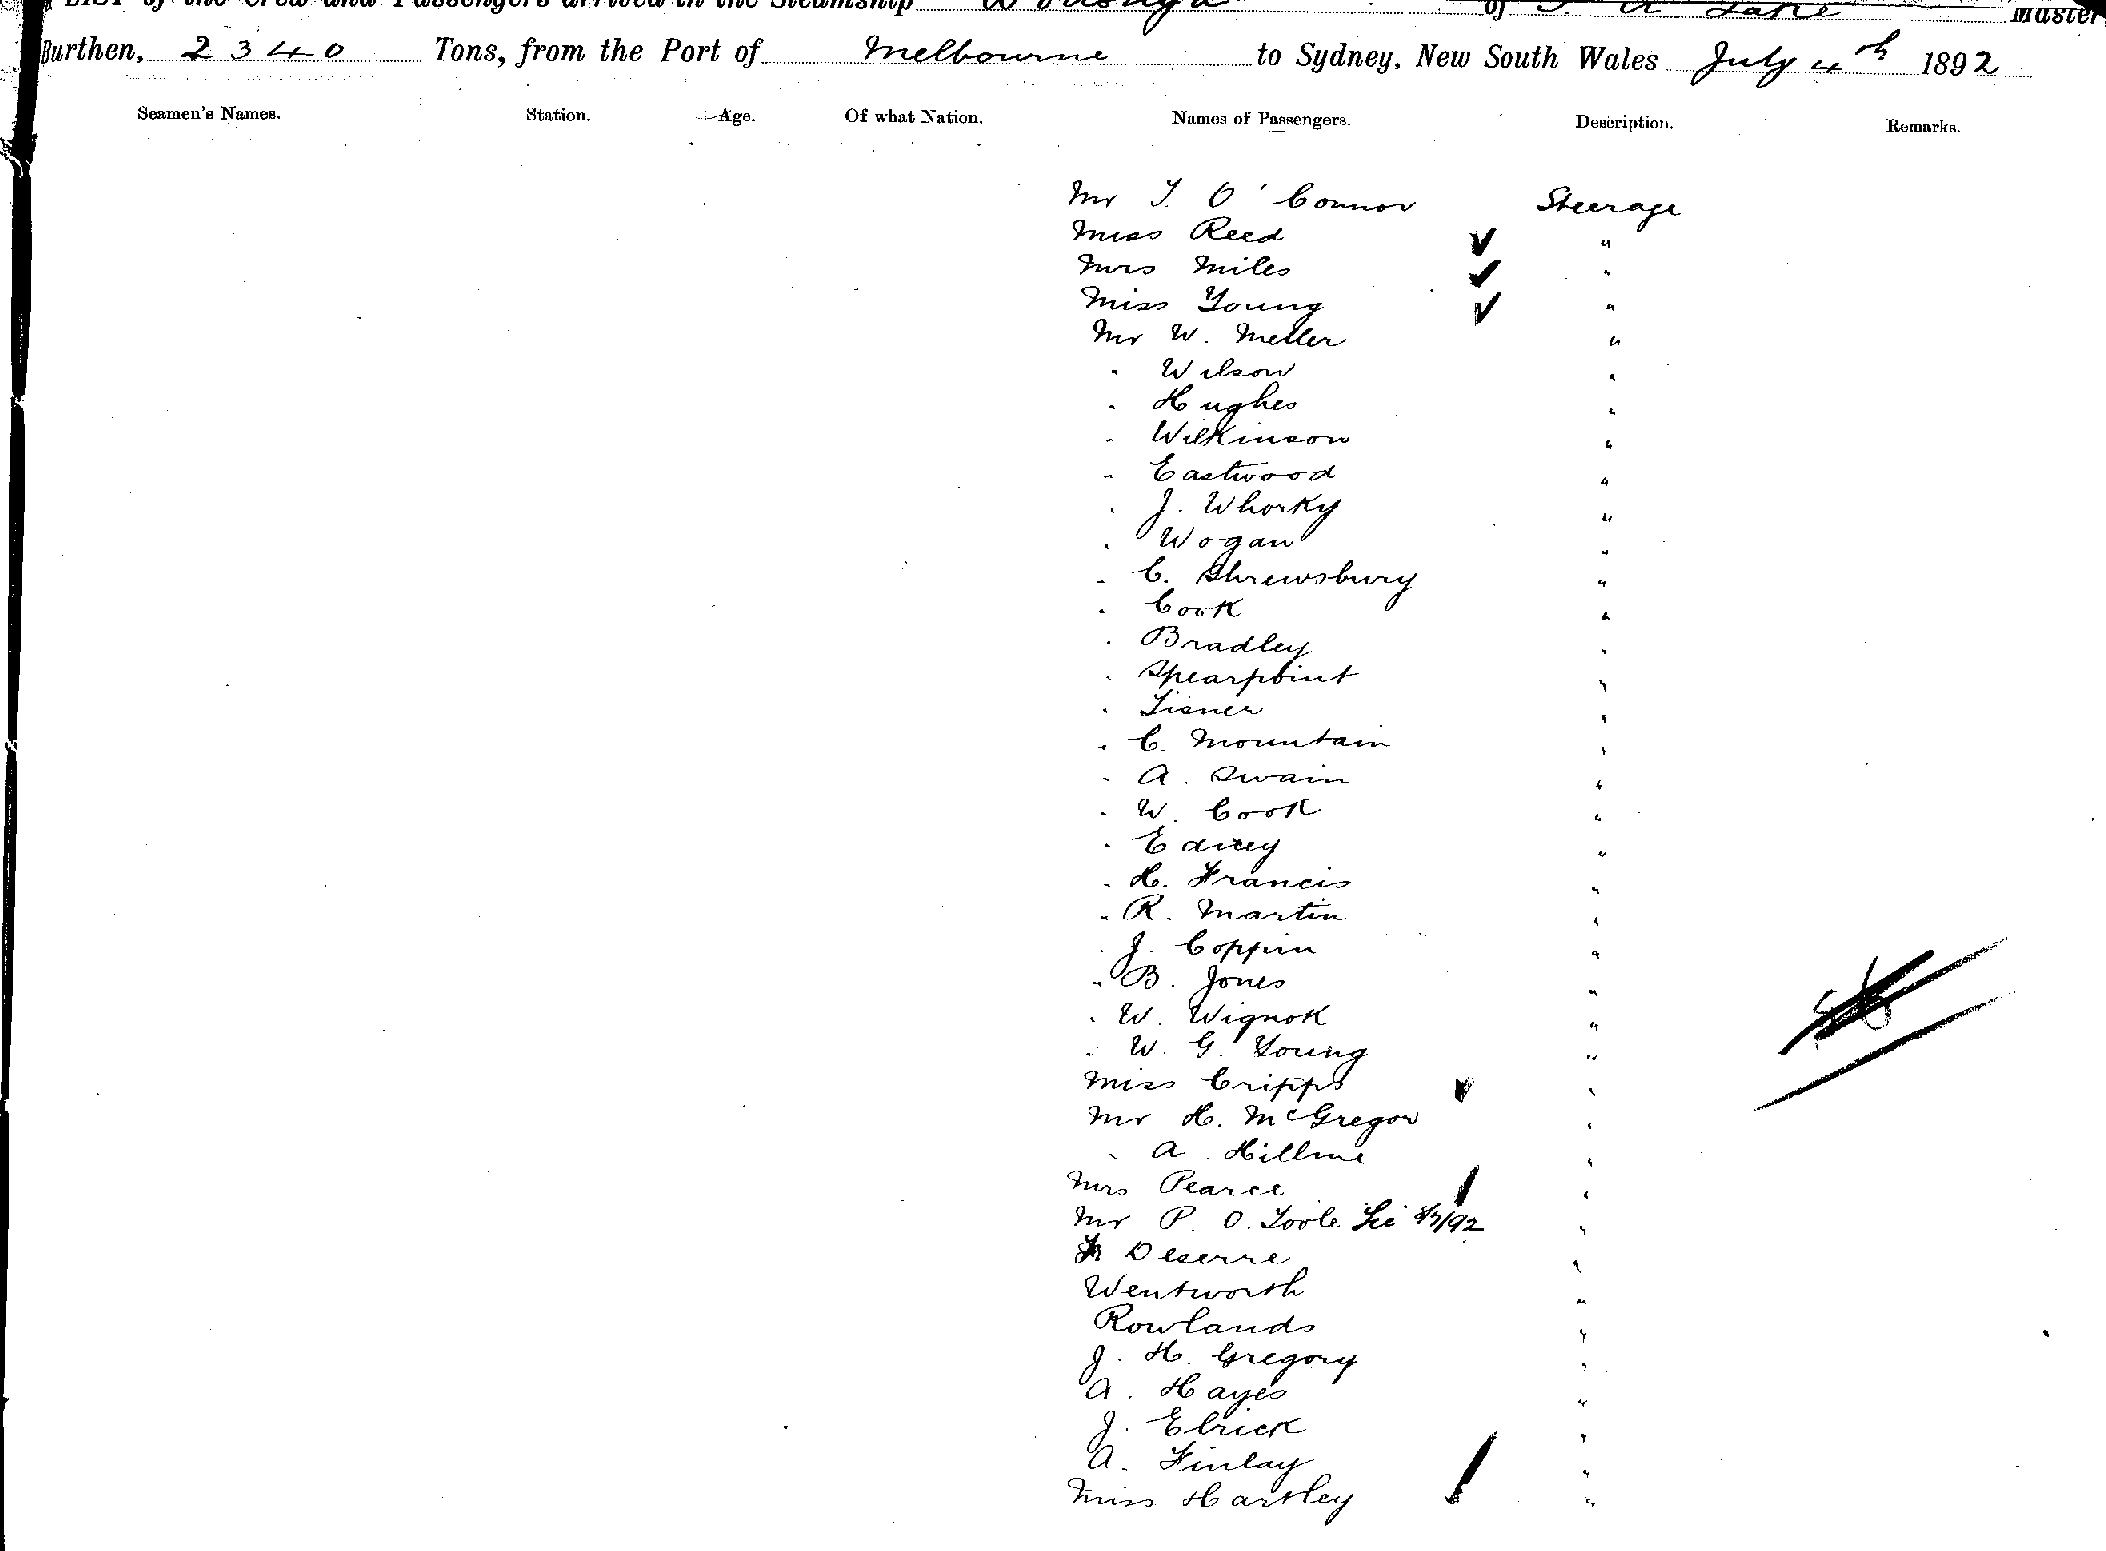 LIST of the Crew and Passengers arrived in the Steamship Wodonga of J. A. Lake Master
Burthen, 2340 Tons, from the Port of Melbourne to Sydney, New South Wales July 4th 1892
Seamen's Names. Station. Age. Of what Nation. Names of Passengers. Description. Remarks.
Mr T. O'Connor Steerage
Miss Reed "
Mrs Miles "
Miss Young "
Mr W. Meller "
" Wilson "
" Hughes "
" Wilkinson "
" Eastwood "
" J. Whorky "
" Wogan "
" C. Shrewsbury "
" Cook "
" Bradley "
" Spearpoint "
" Lisner "
" C. Mountain "
" A. Swain "
" W. Cook "
" "
" H. Francis "
" R. Martin "
" J. Coppin "
" B. Jones "
" W. Wignok "
" W. G. Young "
Miss Cripps "
Mr H. McGregor "
" A. "
Mrs Pearce "
Mr P. O. Toole "
Deserre "
Wentworth "
Rowlands "
J. H. Gregory "
A. Hayes "
J. Elrick "
A. Finlay "
Miss Hartley "